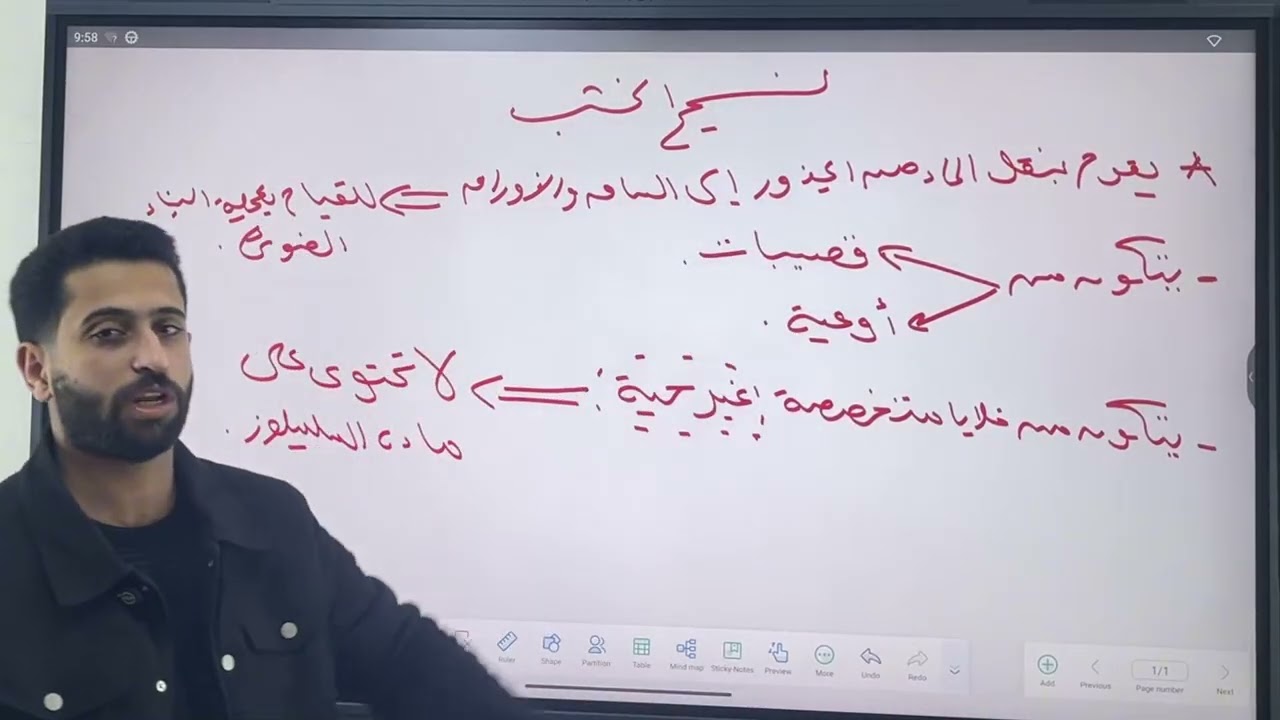 9:58
نسيج الخشب
* يقوم بنقل الماء من الجذور إلى الساق والأوراق ⇐ للقيام بعملية البناء
الضوئي.
- يتكون من
قصيبات.
أوعية.
- يتكون من خلايا متخصصة غير حية: ⇐ لا تحتوي على
مادة السليلوز.
Ruler Shape Partition Table Mind map Sticky Notes Preview More Undo Redo
Add Previous 1/1 Page number Next